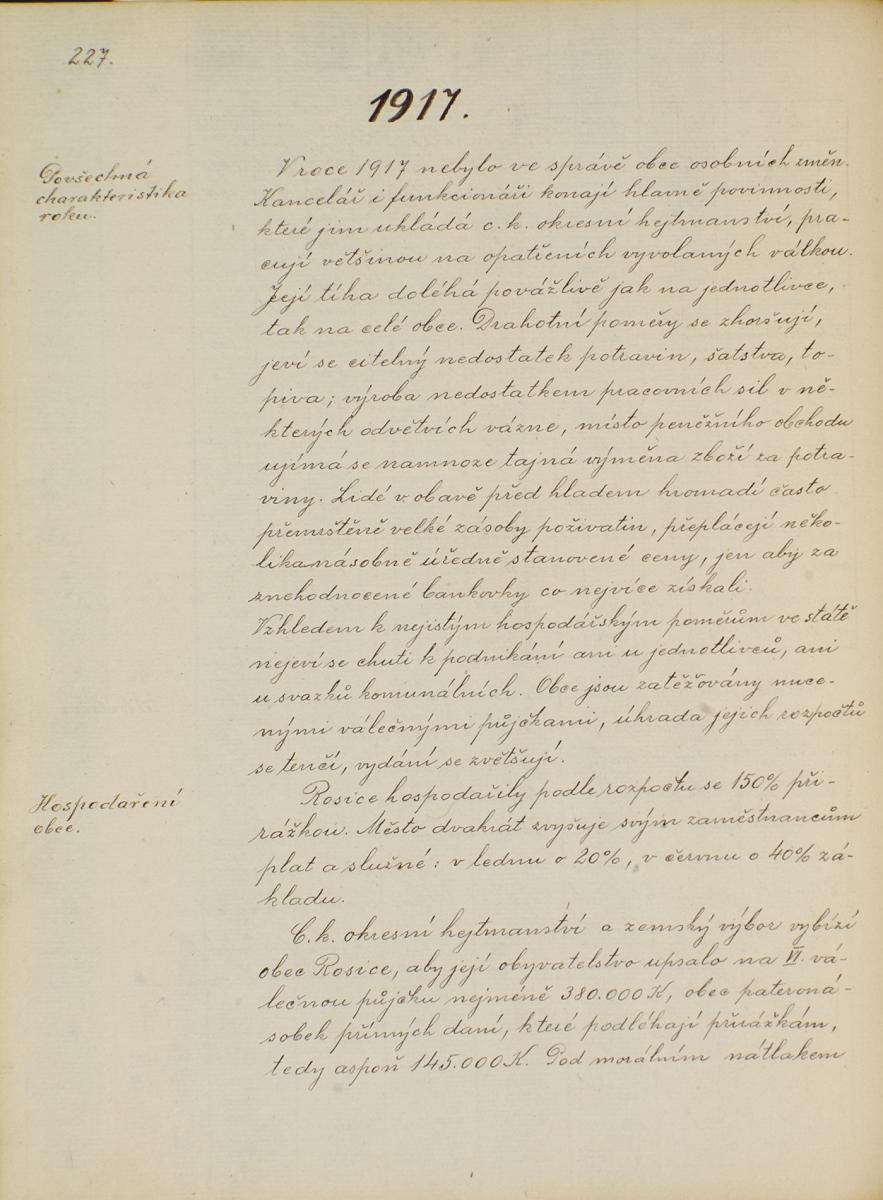 227.
1917.
Povšechná
charakteristika
roku.
V roce 1917 nebylo ve správě obce osobních změn.
Kancelář i funkcionáři konají hlavně povinnosti,
které jim ukládá c. k. okresní hejtmanství, pra-
cují většinou na opatřeních vyvolaných válkou.
Její tíha doléhá povážlivě jak na jednotlivce,
tak na celé obce. Drahotní poměry se zhoršují,
jeví se citelný nedostatek potravin, šatstva, to-
piva; výroba nedostatkem pracovních sil v ně-
kterých odvětvích vázne, místo peněžního obchodu
ujímá se namnoze tajná výměna zboží za potra-
viny. Lidé v obavě před hladem hromadí často
přemrštěně velké zásoby poživatin, přeplácejí něko-
likanásobně úředně stanovené ceny, jen aby za
znehodnocené bankovky co nejvíce získali.
Vzhledem k nejistým hospodářským poměrům ve státě
nejeví se chuti k podnikání ani u jednotlivců, ani
u svazků komunálních. Obce jsou zatěžovány nuce-
nými válečnými půjčkami, úhrada jejich rozpočtů
se tenčí, vydání se zvětšují.
Hospodaření
obce.
Rosice hospodařily podle rozpočtu se 150% při-
rážkou. Město dvakrát zvyšuje svým zaměstnancům
plat a služné: v lednu o 20%, v červnu o 40% zá-
kladu.
C. k. okresní hejtmanství a zemský výbor vybízí
obec Rosice, aby její obyvatelstvo upsalo na VI. vá-
lečnou půjčku nejméně 380.000 K, obec pateroná-
sobek přímých daní, které podléhají přirážkám,
tedy aspoň 145.000 K. Pod morálním nátlakem